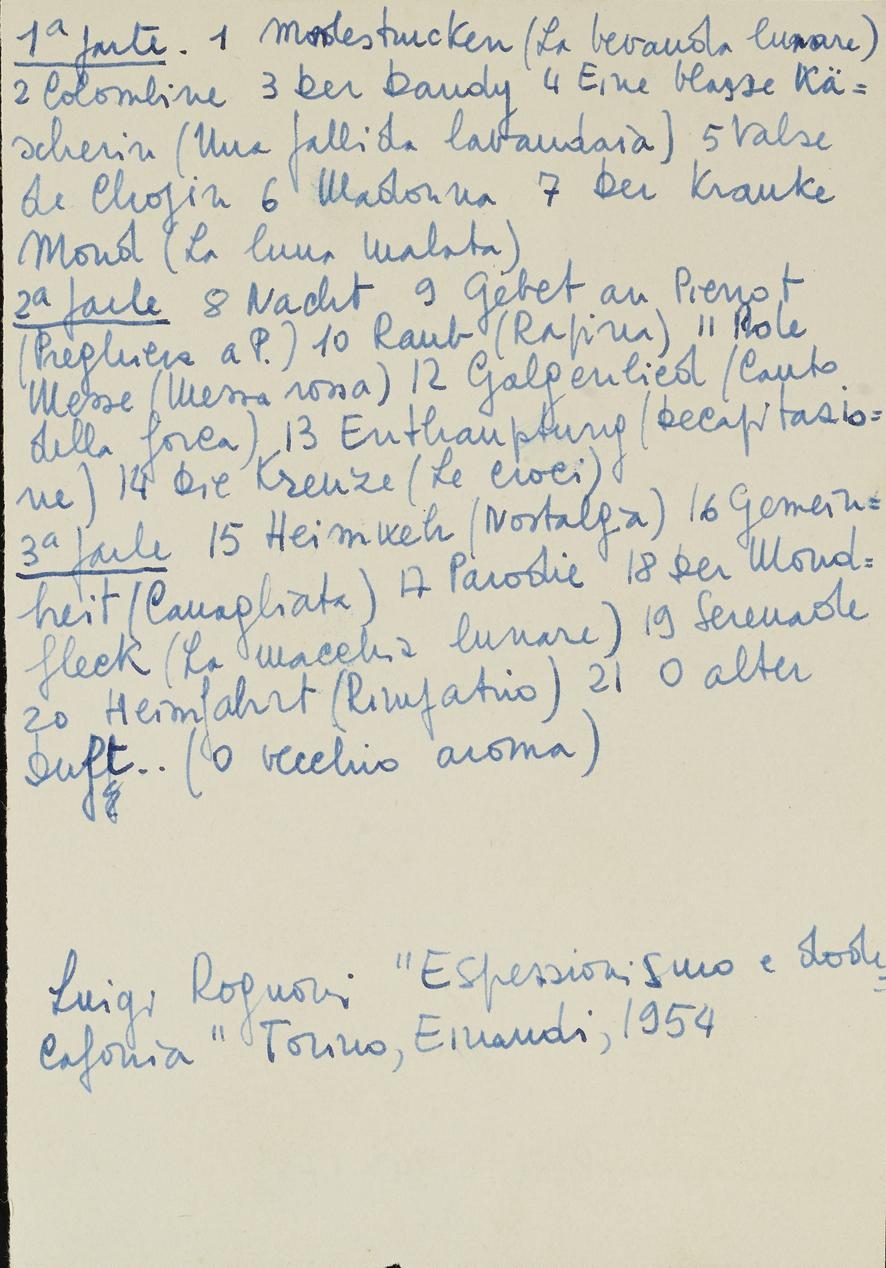 1ª parte. 1 Mondestrucken (La bevanda lunare)
2 Colombine 3 Der Dandy 4 Eine blasse Wä=
scherin (Una pallida lavandaia) 5 Valse
de Chopin 6 Madonna 7 Der Kranke
Mond (La luna malata)
2ª parte 8 Nacht 9 Gebet an Pierrot
(Preghiera a P.) 10 Raub (Rapina) 11 Rote
Messe (Messa rossa) 12 Galgenlied (Canto
della forca) 13 Enthauptung (Decapitazio=
ne) 14 Die Kreuze (Le croci)
3ª parte 15 Heimweh (Nostalgia) 16 Gemein=
heit (Canagliata) 17 Parodie 18 Der Mond=
fleck (La macchia lunare) 19 Serenade
20 Heimfahrt (Rimpatrio) 21 O alter
Duft.. (O vecchio aroma)
Luigi Rognoni "Espressionismo e dode=
cafonia" Torino, Einaudi, 1954